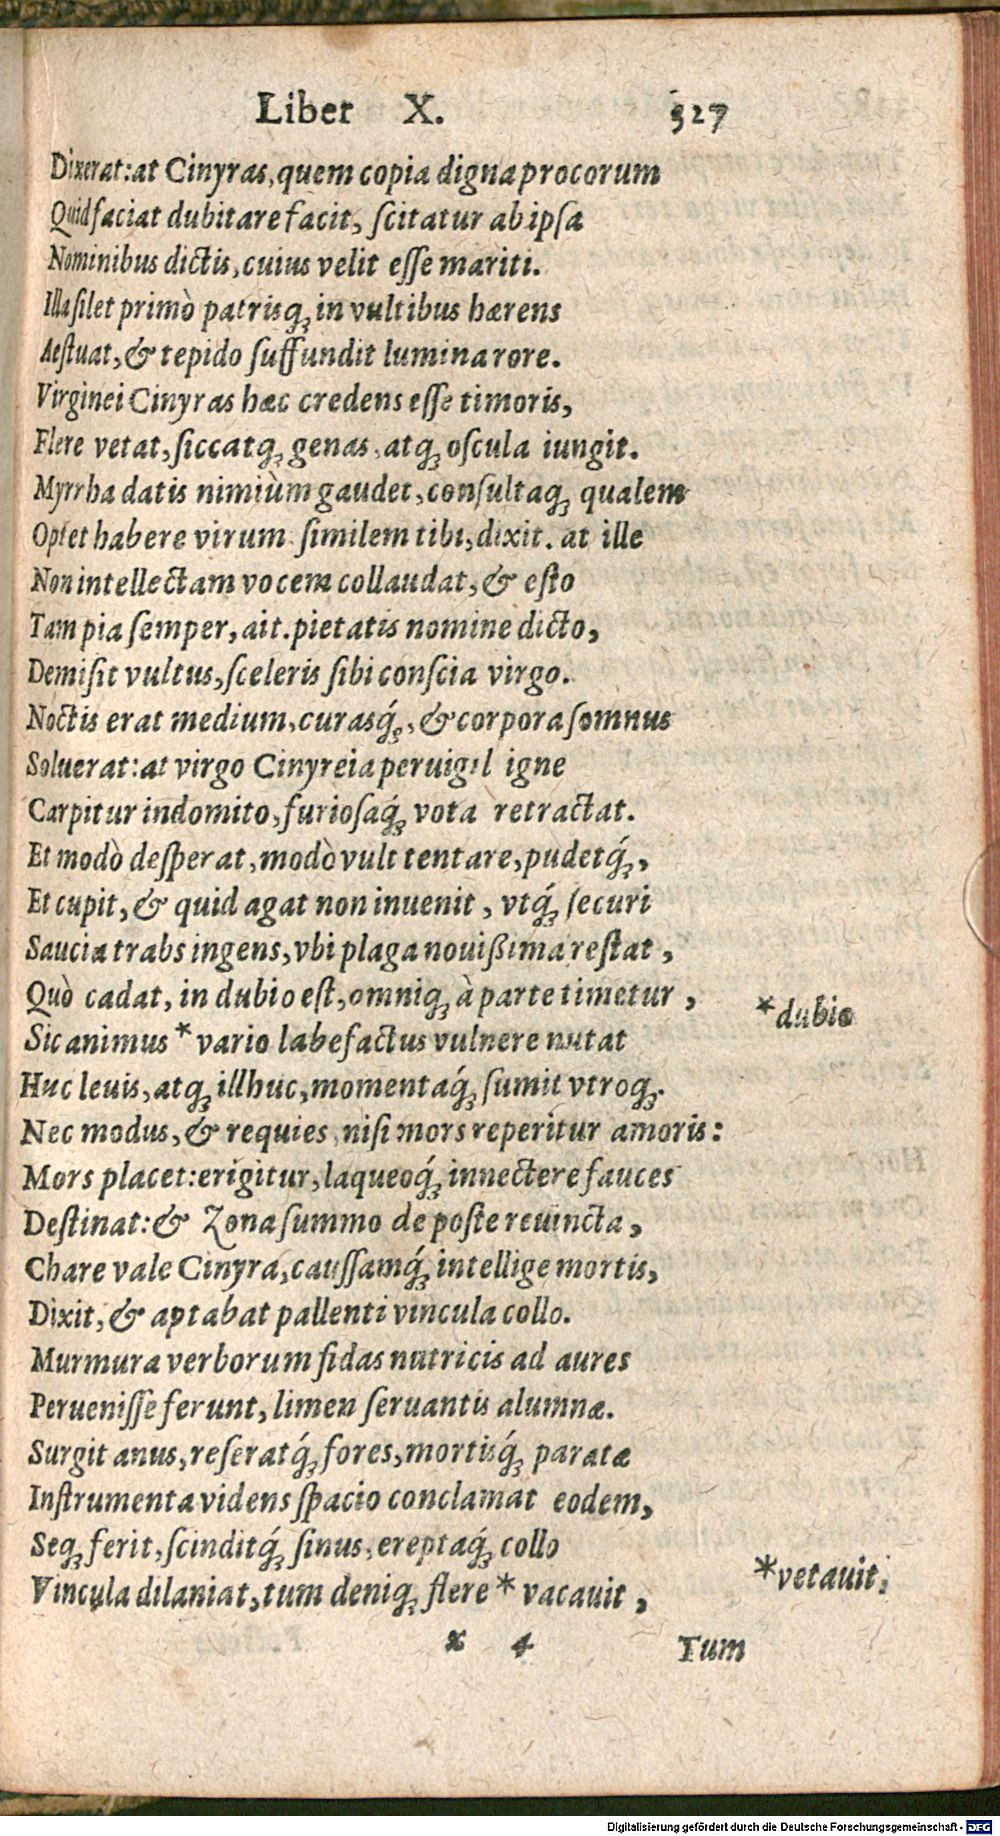 Liber X. 327
Dixerat: at Cinyras, quem copia digna procorum
Quid faciat dubitare facit, ſcitatur ab ipſa
Nominibus dictis, cuius velit eſſe mariti.
Illa ſilet primò patrisq́; in vultibus hærens
Aeſtuat, & tepido ſuffundit lumina rore.
Virginei Cinyras hæc credens eſſe timoris,
Flere vetat, ſiccatq; genas, atq; oſcula iungit.
Myrrha datis nimiùm gaudet, conſultaq; qualem
Optet habere virum: ſimilem tibi, dixit. at ille
Non intellectam vocem collaudat, & eſto
Tam pia ſemper, ait. pietatis nomine dicto,
Demiſit vultus, ſceleris ſibi conſcia virgo.
Noctis erat medium, curasq́;, & corpora ſomnus
Soluerat: at virgo Cinyreia peruigil igne
Carpitur indomito, furioſaq́; vota retractat.
Et modò deſperat, modò vult tentare, pudetq́;,
Et cupit, & quid agat non inuenit, vtq́; ſecuri
Saucia trabs ingens, vbi plaga nouißima reſtat,
Quò cadat, in dubio eſt, omniq; à parte timetur,
*dubio
Sic animus * vario labefactus vulnere nutat
Huc leuis, atq; illhuc, momentaq́; ſumit vtroq;.
Nec modus, & requies, niſi mors reperitur amoris:
Mors placet: erigitur, laqueoq́; innectere fauces
Deſtinat: & Zona ſummo de poſte reuincta,
Chare vale Cinyra, cauſſamq́; intellige mortis,
Dixit, & aptabat pallenti vincula collo.
Murmura verborum fidas nutricis ad aures
Perueniſſe ferunt, limen ſeruantis alumnæ.
Surgit anus, reſeratq́; fores, mortisq́; paratæ
Inſtrumenta videns ſpacio conclamat eodem,
Seq; ferit, ſcinditq́; ſinus, ereptaq́; collo
Vincula dilaniat, tum deniq; flere * vacauit,
*vetauit,
x 4 Tum
Digitalisierung gefördert durch die Deutsche Forschungsgemeinschaft - DFG